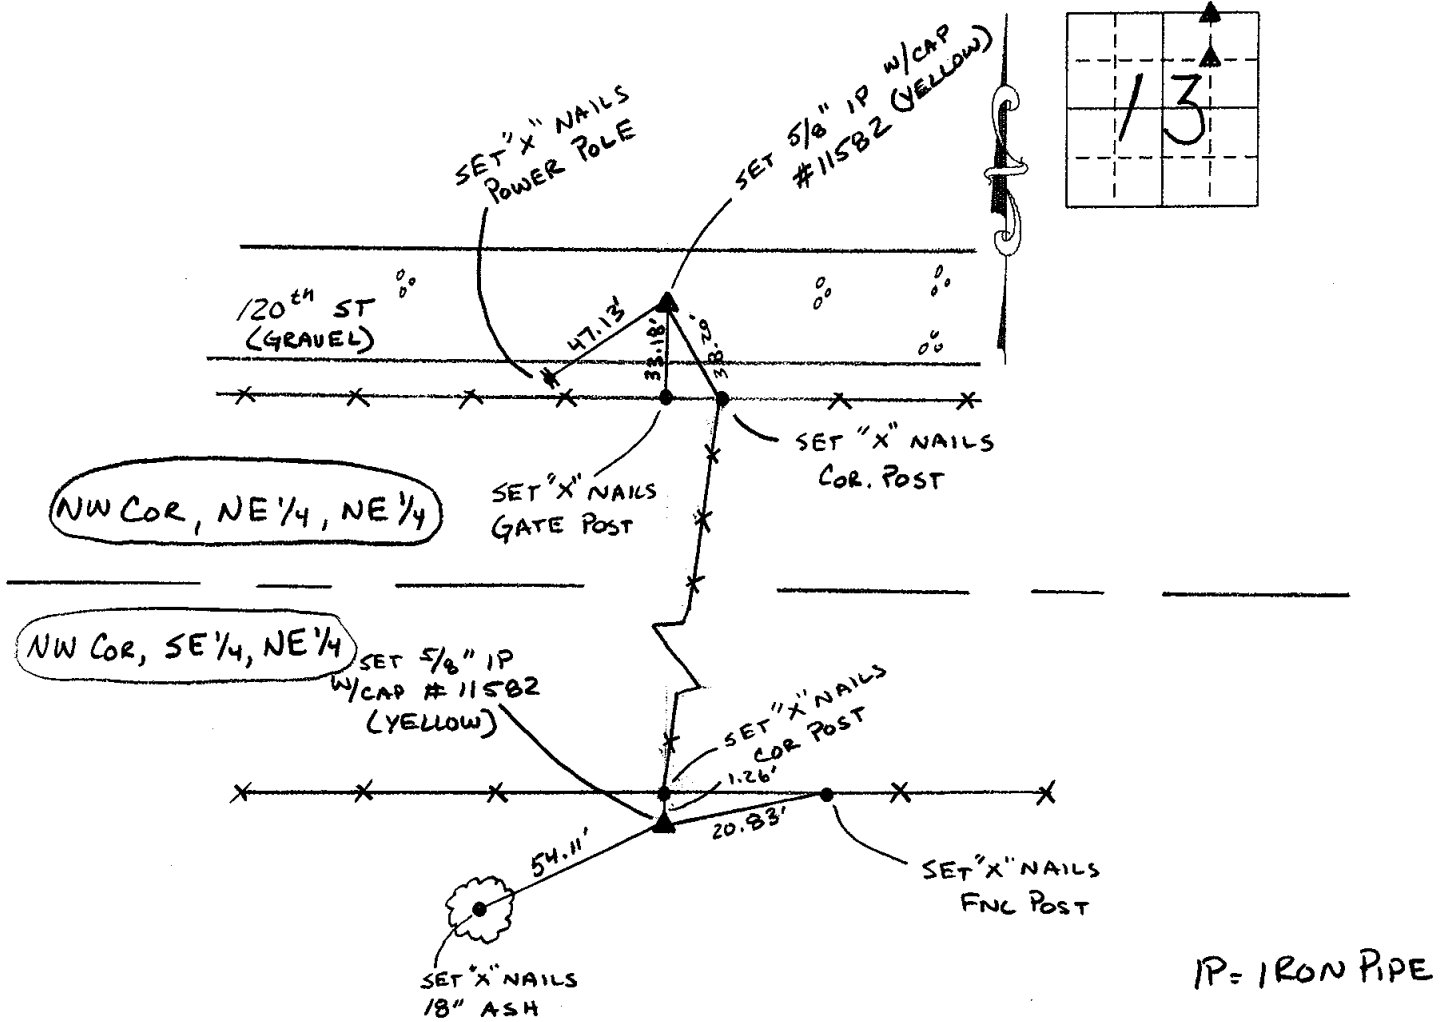 13
SET "X" NAILS
POWER POLE
SET 5/8" IP W/CAP
#11582 (YELLOW)
120th ST
(GRAVEL)
47.13'
33.18'
38.20'
SET "X" NAILS
COR. POST
SET "X" NAILS
GATE POST
NW COR, NE 1/4, NE 1/4
NW COR, SE 1/4, NE 1/4
SET 5/8" IP
W/CAP # 11582
(YELLOW)
SET "X" NAILS
COR POST
1.26'
20.83'
54.11'
SET "X" NAILS
FNC POST
SET "X" NAILS
18" ASH
IP= IRON PIPE